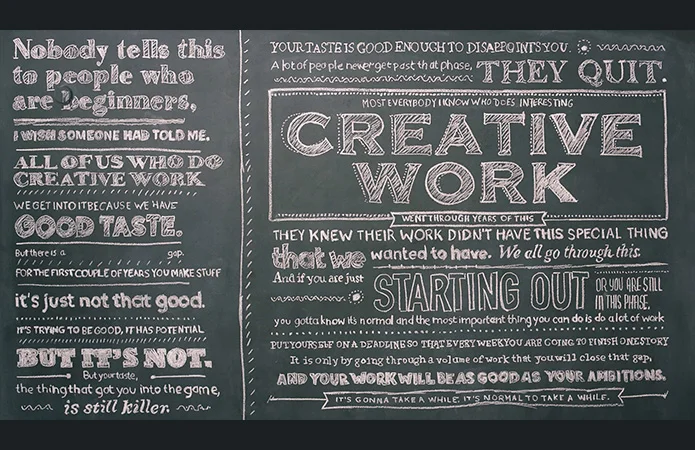 Nobody tells this
to people who
are beginners,
I WISH SOMEONE HAD TOLD ME.
ALL OF US WHO DO
CREATIVE WORK
WE GET INTO IT BECAUSE WE HAVE
GOOD TASTE.
But there is a gap.
FOR THE FIRST COUPLE OF YEARS YOU MAKE STUFF
it's just not that good.
IT'S TRYING TO BE GOOD, IT HAS POTENTIAL
BUT IT'S NOT.
But your taste,
the thing that got you into the game,
is still killer.
YOUR TASTE IS GOOD ENOUGH TO DISAPPOINTS YOU.
A lot of people never get past that phase,
THEY QUIT.
MOST EVERYBODY I KNOW WHO DOES INTERESTING
CREATIVE
WORK
WENT THROUGH YEARS OF THIS
THEY KNEW THEIR WORK DIDN'T HAVE THIS SPECIAL THING
that we wanted to have. We all go through this.
And if you are just
STARTING OUT
OR YOU ARE STILL
IN THIS PHASE,
you gotta know it's normal and the most important thing you can do is do a lot of work
PUT YOURSELF ON A DEADLINE SO THAT EVERY WEEK YOU ARE GOING TO FINISH ONE STORY
It is only by going through a volume of work that you will close that gap,
AND YOUR WORK WILL BE AS GOOD AS YOUR AMBITIONS.
IT'S GONNA TAKE A WHILE. IT'S NORMAL TO TAKE A WHILE.